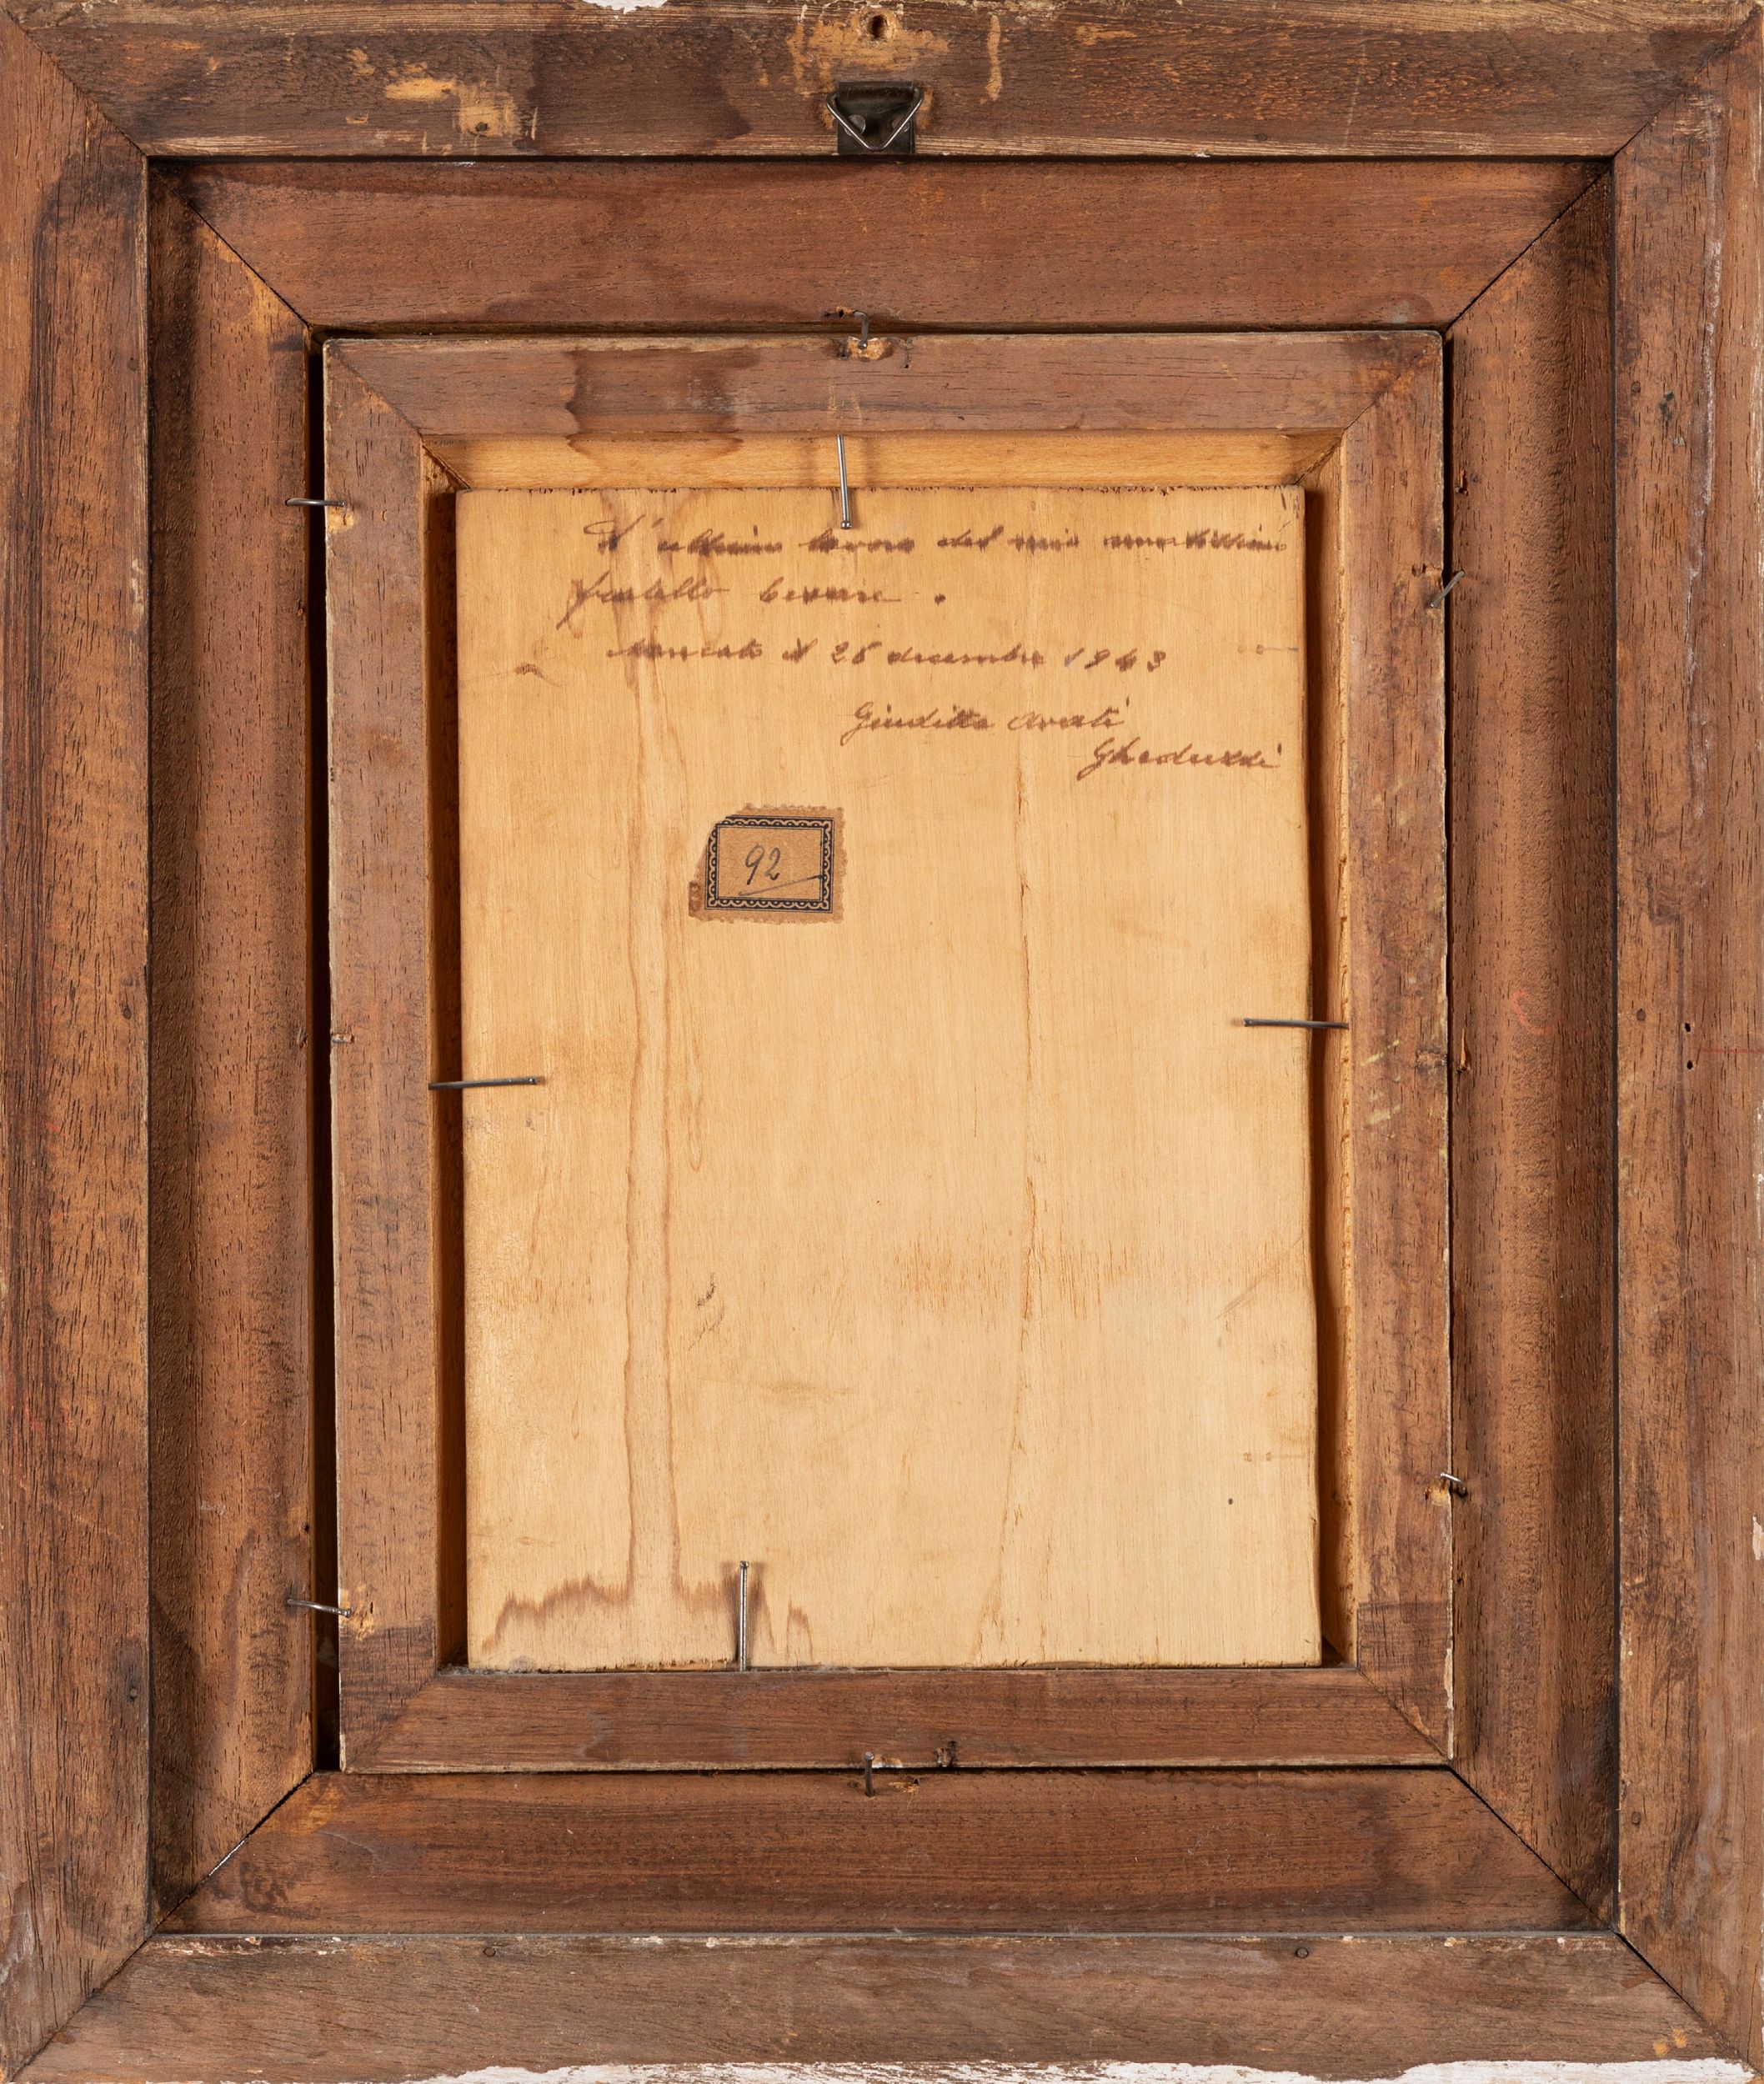 L'ultimo lavoro del mio amatissimo
fratello Cesare.
Mancato il 26 dicembre 1943
Giuditta
Gheduzzi
92